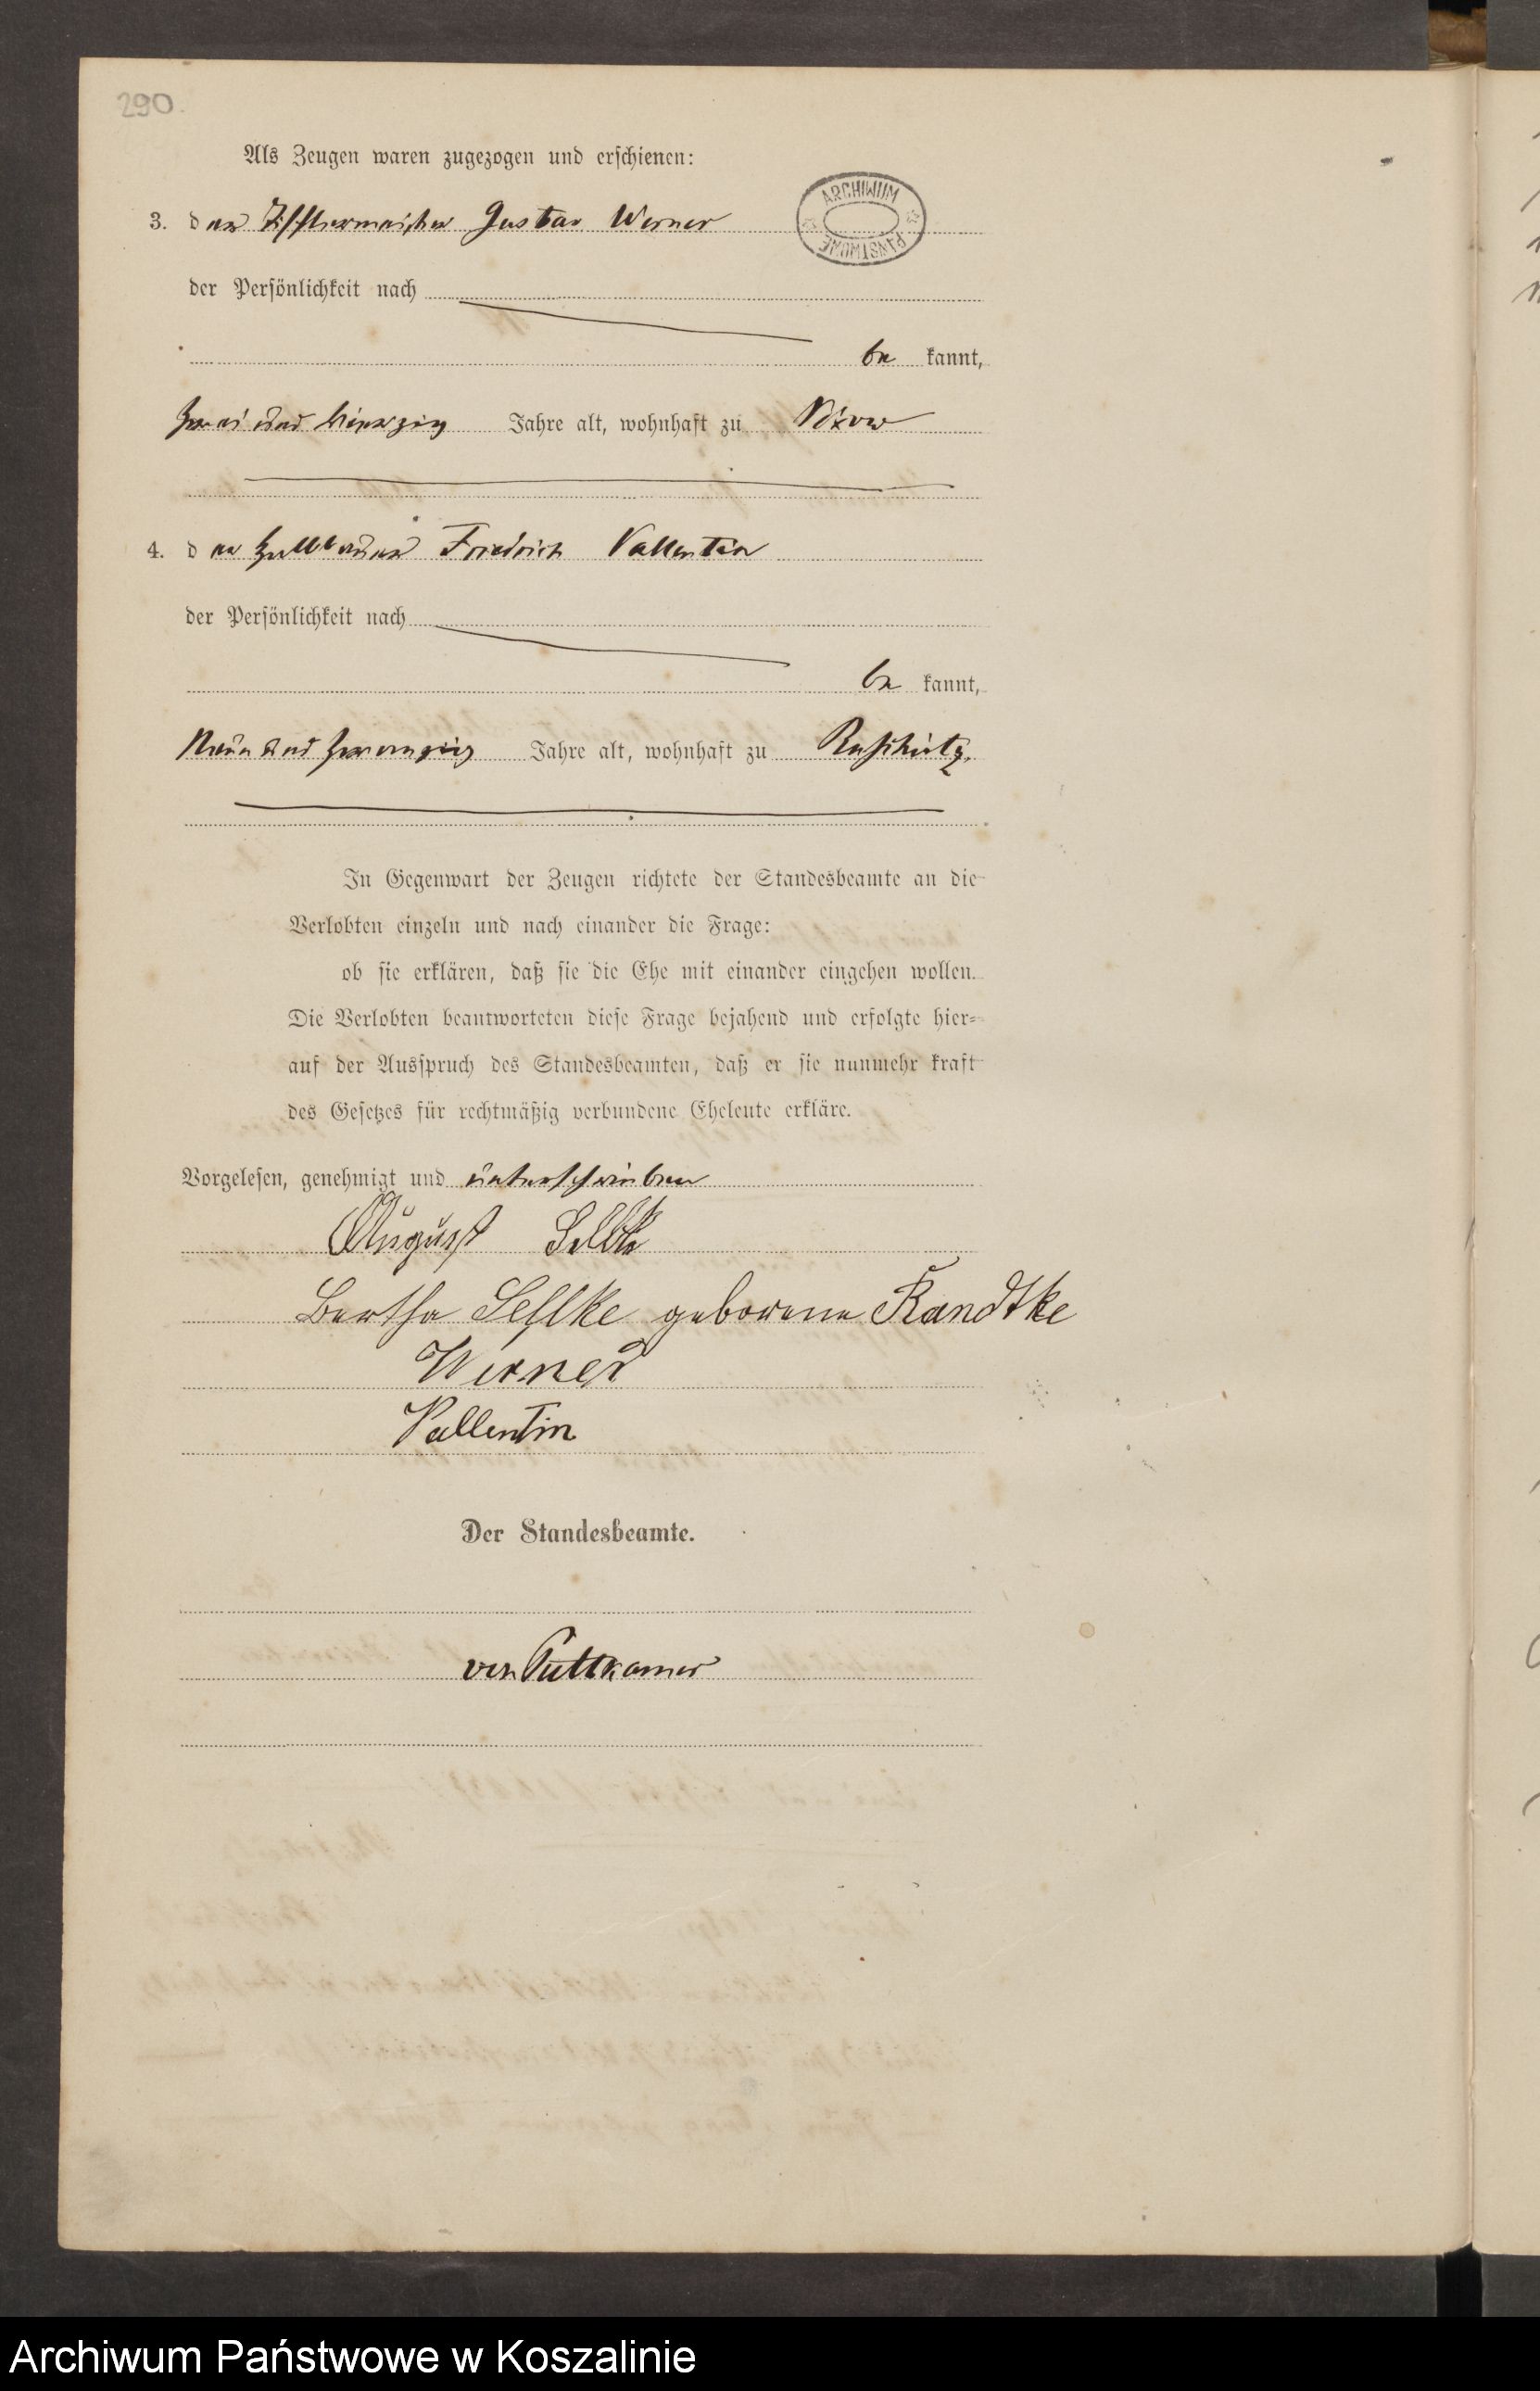 290.
Als Zeugen waren zugezogen und erschienen:
ARCHIWUM PAŃSTWOWE
3. der Tischlermeister Gustav Werner
der Persönlichkeit nach
be kannt,
zwei und vierzig Jahre alt, wohnhaft zu
4. der Friedrich Vallentin
der Persönlichkeit nach
be kannt,
Neun und zwanzig Jahre alt, wohnhaft zu Ruschütz.
In Gegenwart der Zeugen richtete der Standesbeamte an die
Verlobten einzeln und nach einander die Frage:
ob sie erklären, daß sie die Ehe mit einander eingehen wollen.
Die Verlobten beantworteten diese Frage bejahend und erfolgte hier=
auf der Ausspruch des Standesbeamten, daß er sie nunmehr kraft
des Gesetzes für rechtmäßig verbundene Eheleute erkläre.
Vorgelesen, genehmigt und unterschrieben
August Sellke
Bertha Sellke geborene Randtke
Werner
Vallentin
Der Standesbeamte.
von Puttkamer
Archiwum Państwowe w Koszalinie